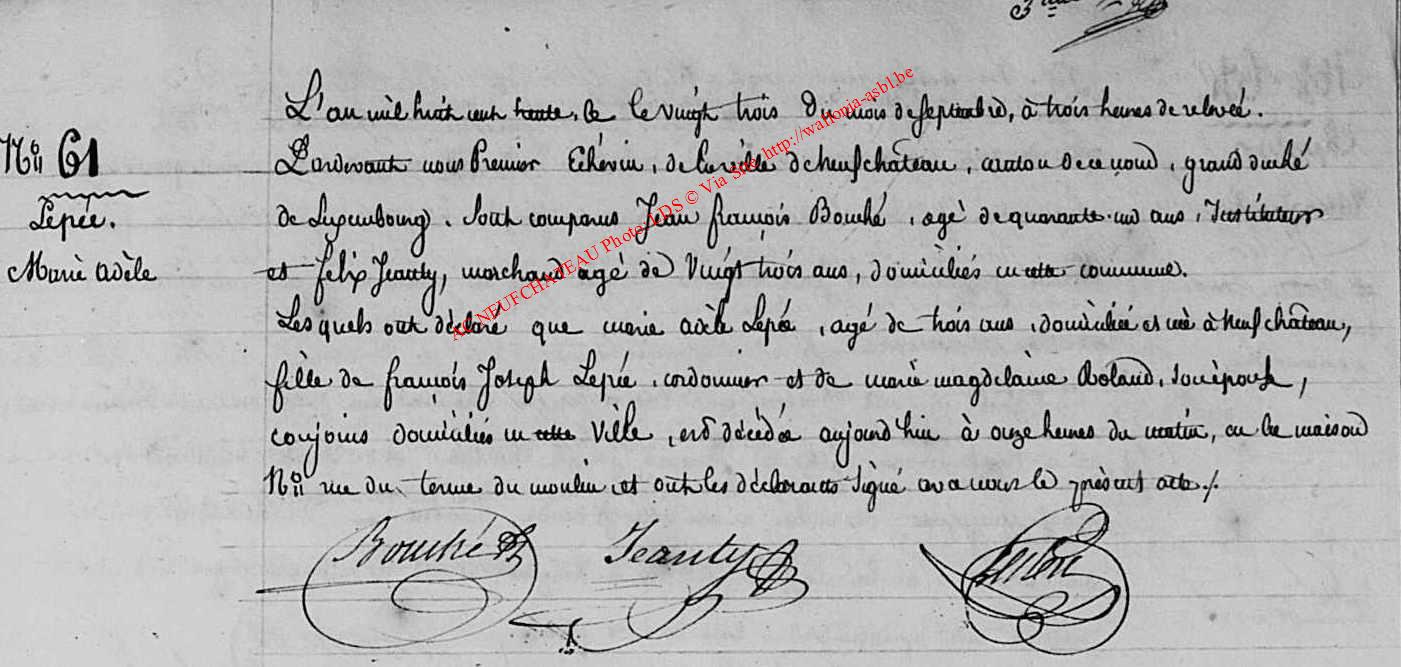 L'an mil huit cent trente, le le vingt trois du mois de septembre, à trois heures de relevée.
Nº 61
Pardevant nous Premier Echévin, de la ville de neufchâteau, canton de ce nom, grand duché
Lepée.
de Luxembourg. Sont comparus Jean françois Bouché, agé de quarante un ans, Instituteur
Marie adèle
et felix Jeanty, marchand agé de Vingt trois ans, domiciliés en cette commune.
Les quels ont déclaré que marie adèle Lepée, agé de trois ans, domiciliée et née à neufchâteau,
fille de françois Joseph Lepée, cordonnier et de marie magdelaine Roland, son épouse,
conjoins domiciliés en cette Ville, est décédée aujourd'hui à onze heures du matin, en la maison
Nº rue du terme du moulin, et ont les déclarants signé avec nous le présent acte ./.
Bouché Jeanty
AC NEUFCHATEAU Photo ADS © Via Site http://wallonia-asbl.be